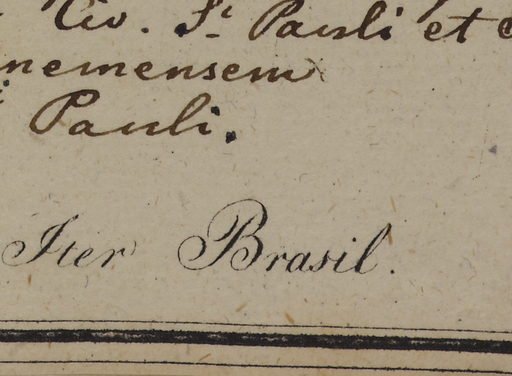 Civ. St. Pauli et
nemensem
Pauli.
Iter Brasil.